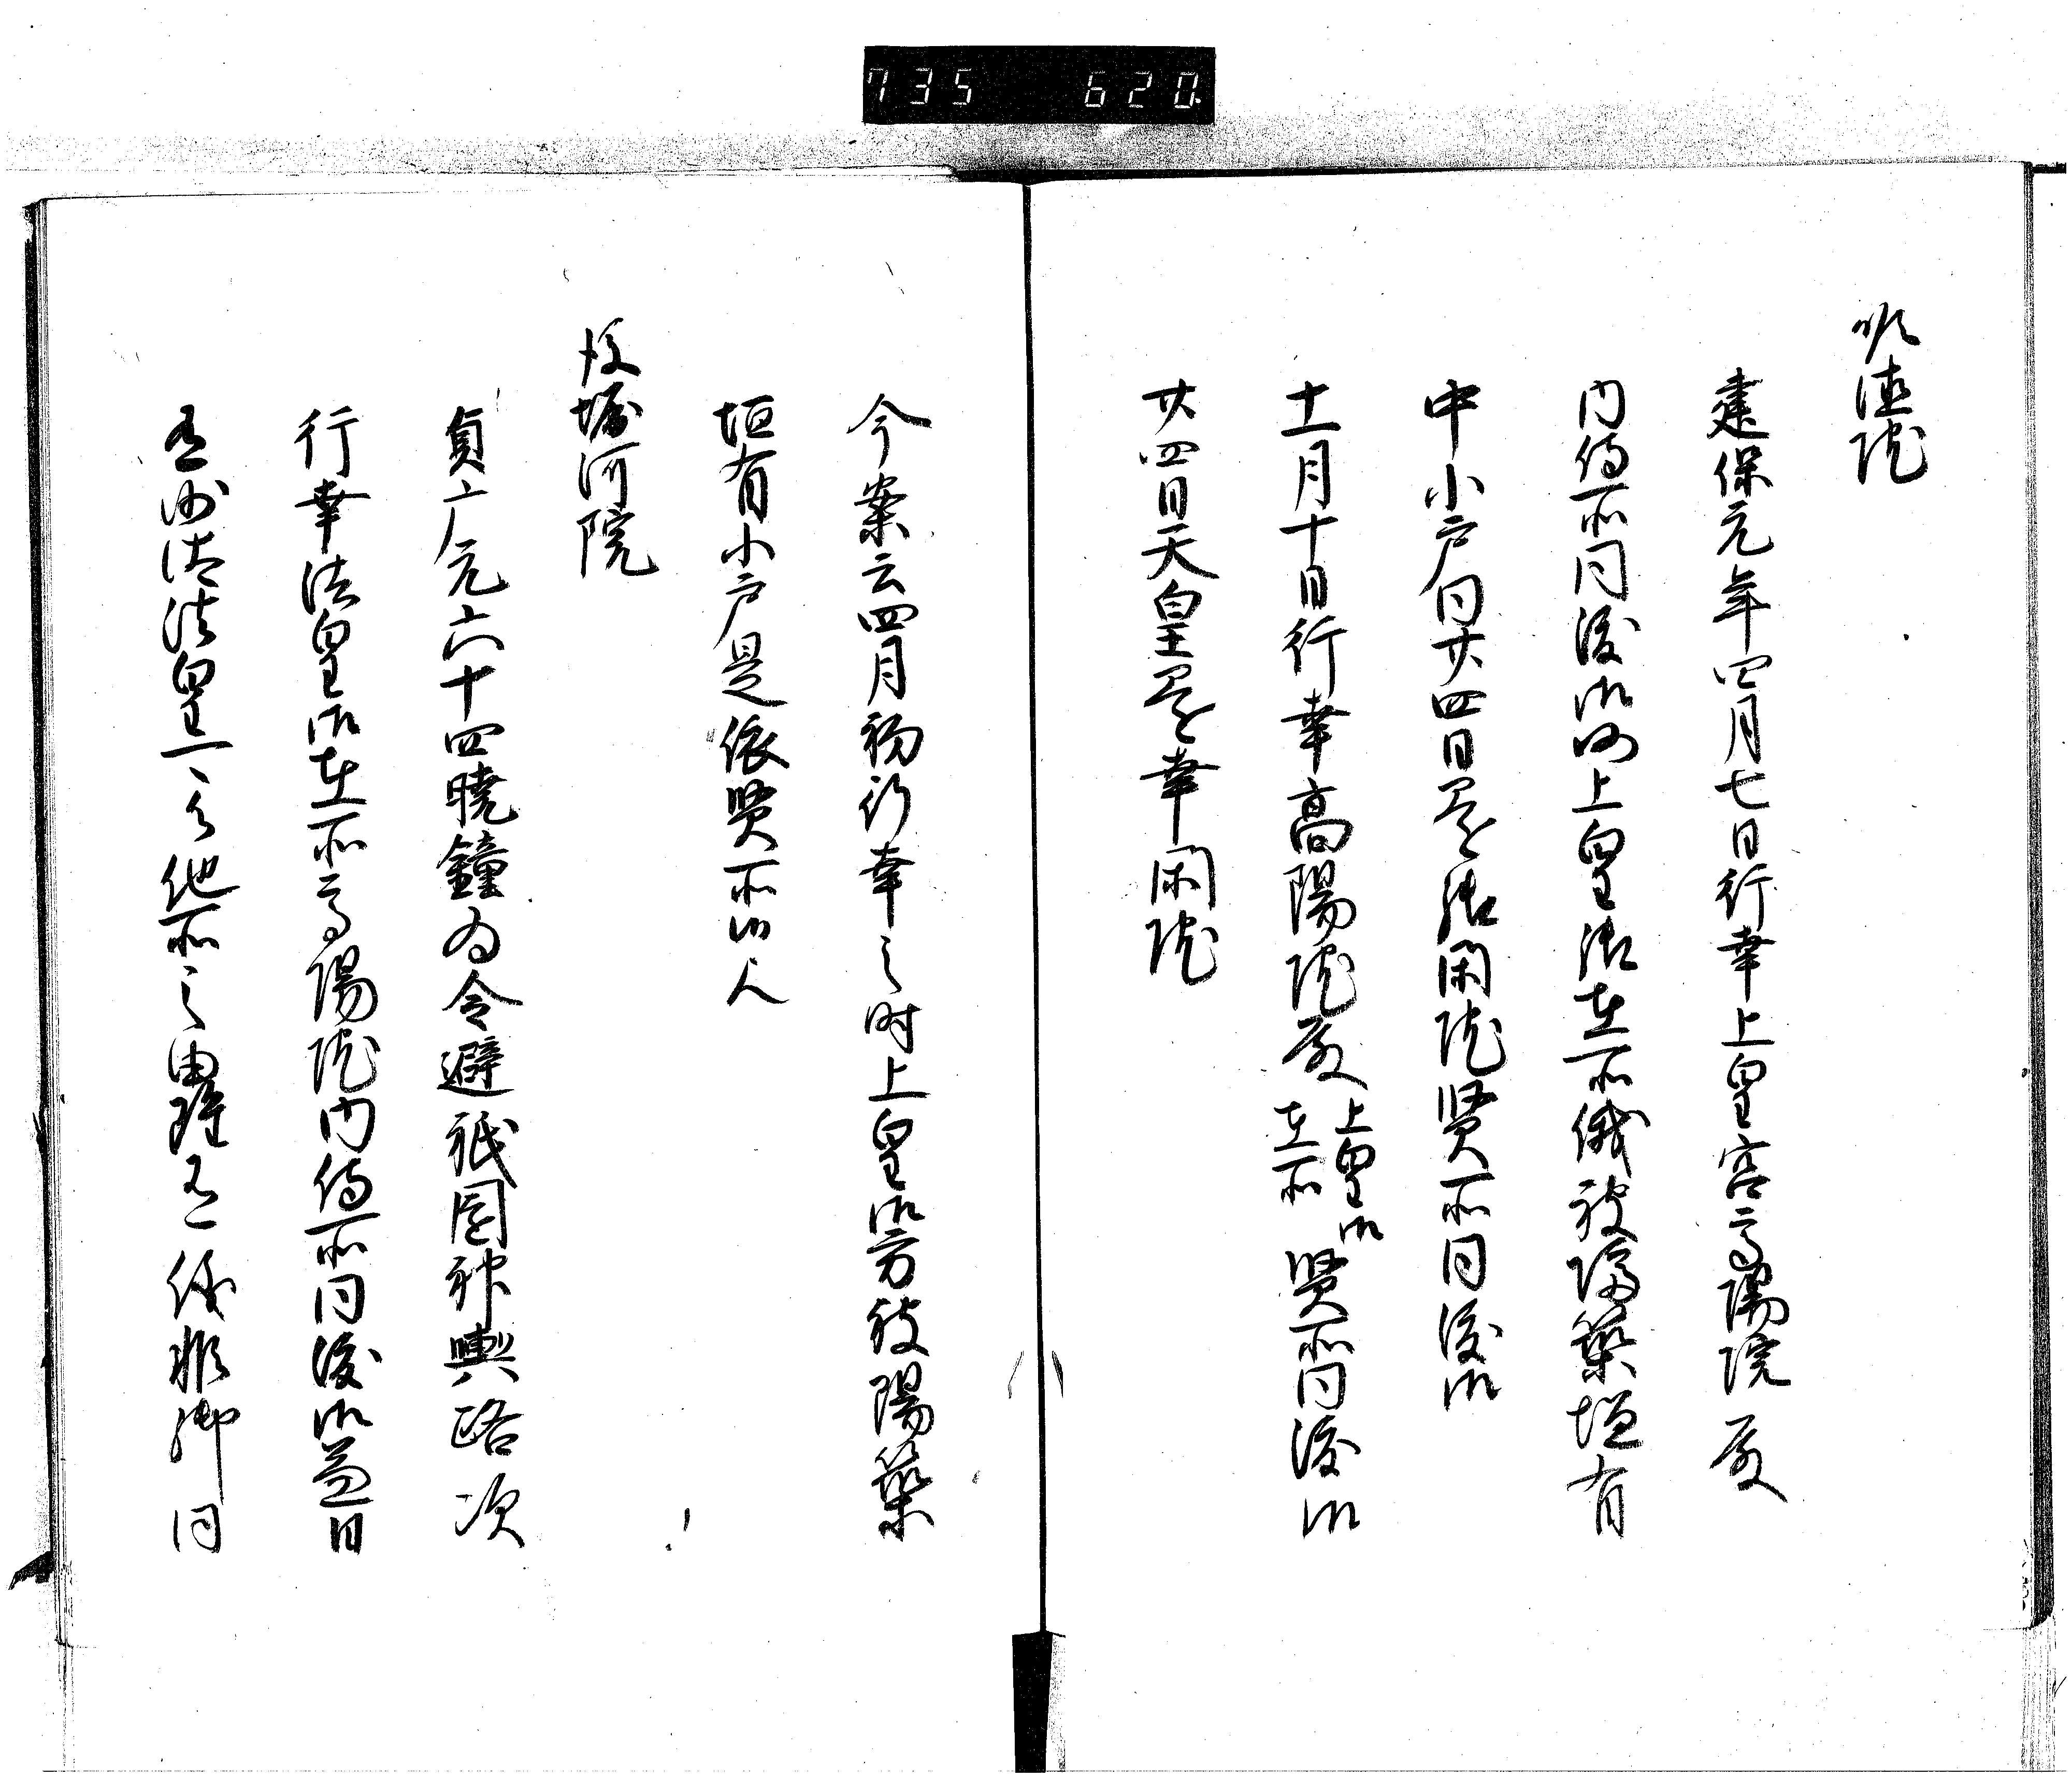 735 620
順徳院
建保元年四月七日行幸上皇宮高陽院殿
内侍所同渡御 上皇御在所俄被隔築垣有
中小戸同廿四日還御閑院賢所同渡御
十一月十日行幸高陽院殿上皇御在所賢所同渡御
廿四日天皇還幸閑院
今案云四月初行幸之時上皇御方被隔築
垣有小戸是依賢所御人
後堀河院
貞广元六十四暁鐘為令避祇園神輿路次
行幸法皇御在所高陽院内侍所同渡御前日
有沙汰法皇 他所之 同